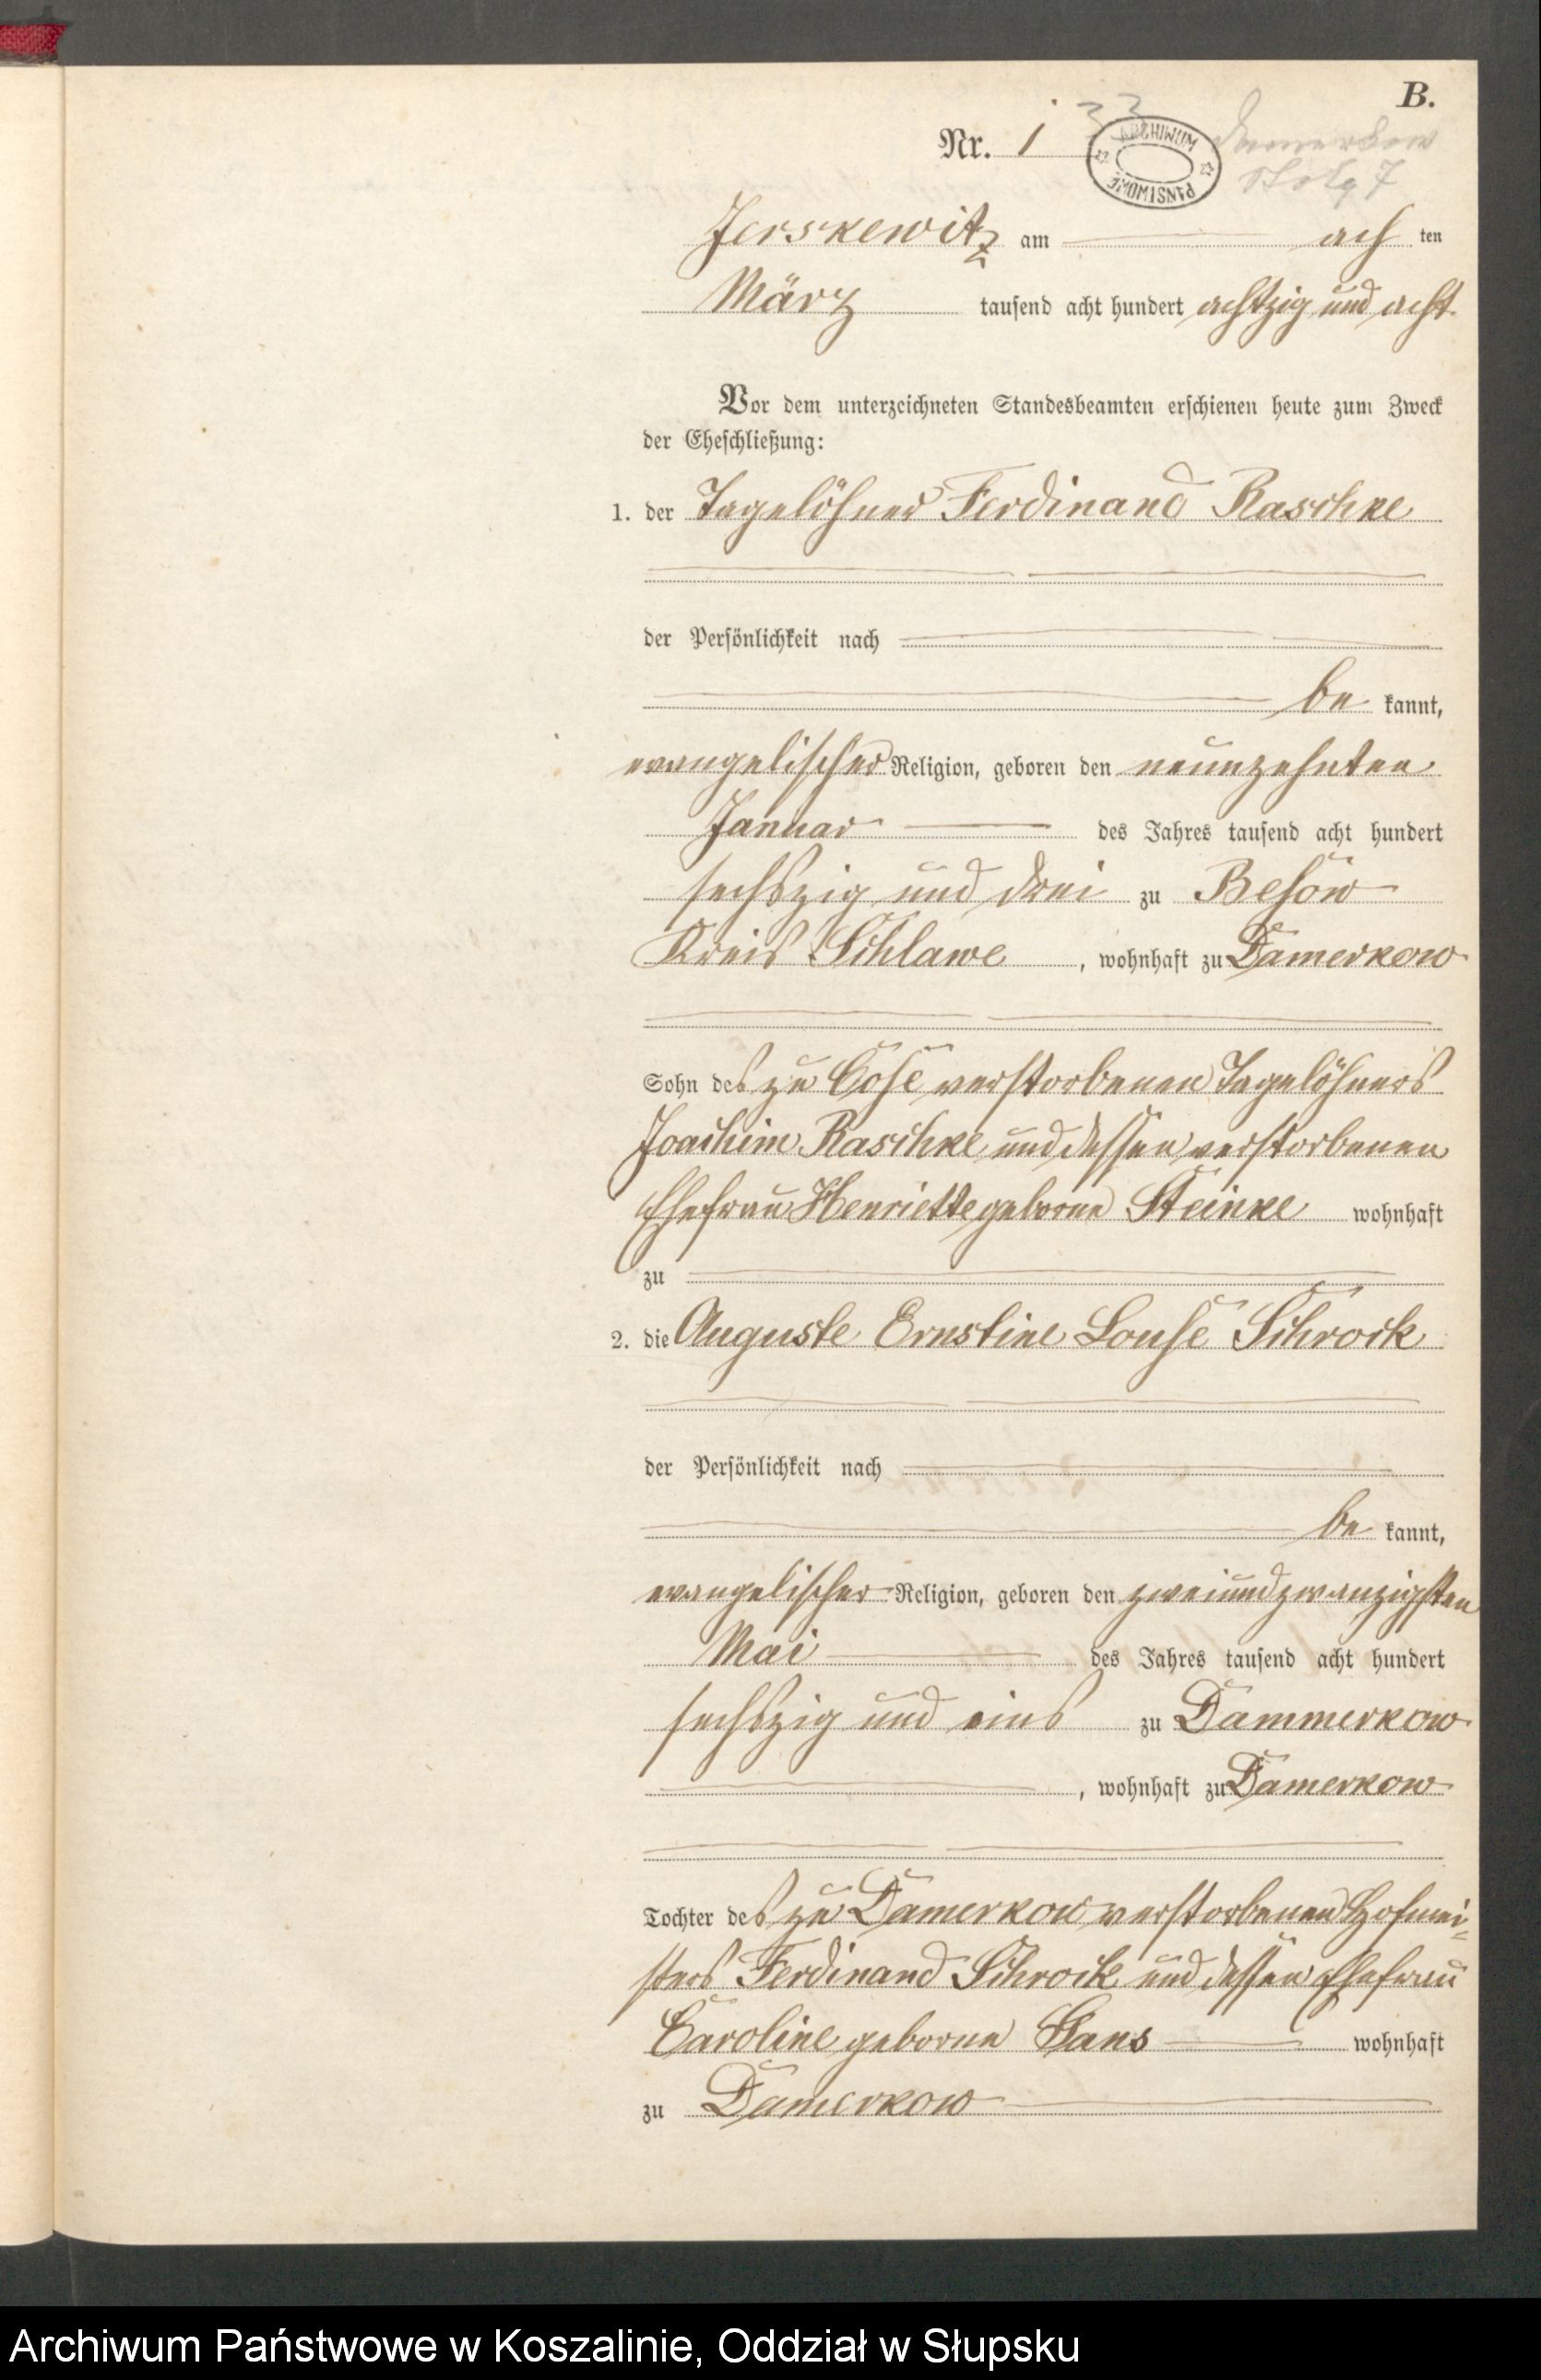 B.
Nr. 1
33
Damerkow
Stolp 7
ARCHIWUM PAŃSTWOWE
Jerskewitz am ach ten
März tausend acht hundert achtzig und acht
Vor dem unterzeichneten Standesbeamten erschienen heute zum Zweck
der Eheschließung:
1. der Tagelöhner Ferdinand Raschke
der Persönlichkeit nach
be kannt,
evangelischer Religion, geboren den neunzehnten
Januar des Jahres tausend acht hundert
sechszig und drei zu Besow
Kreis Schlawe, wohnhaft zu Damerkow
Sohn des zu Cose verstorbenen Tagelöhners
Joachim Raschke und dessen verstorbenen
Ehefrau Henriette geborne Steinke wohnhaft
zu
2. die Auguste Ernstine Louse Schrock
der Persönlichkeit nach
be kannt,
evangelischer Religion, geboren den zweiundzwanzigsten
Mai des Jahres tausend acht hundert
sechszig und eins zu Dammerkow
, wohnhaft zu Damerkow
Tochter des zu Damerkow verstorbenen Hofmei-
sters Ferdinand Schrock und dessen Ehefrau
Caroline geborne Gans wohnhaft
zu Damerkow
Archiwum Państwowe w Koszalinie, Oddział w Słupsku